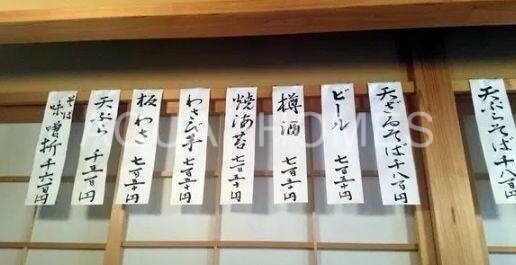 天ぷらそば千八百円
天ざるそば千八百円
ビール 七百五十円
樽酒 七百五十円
焼海苔 七百五十円
わさび芋 七百五十円
板わさ 七百五十円
天ぷら 千五百円
そば味噌折 千六百円
AQUA HOMES